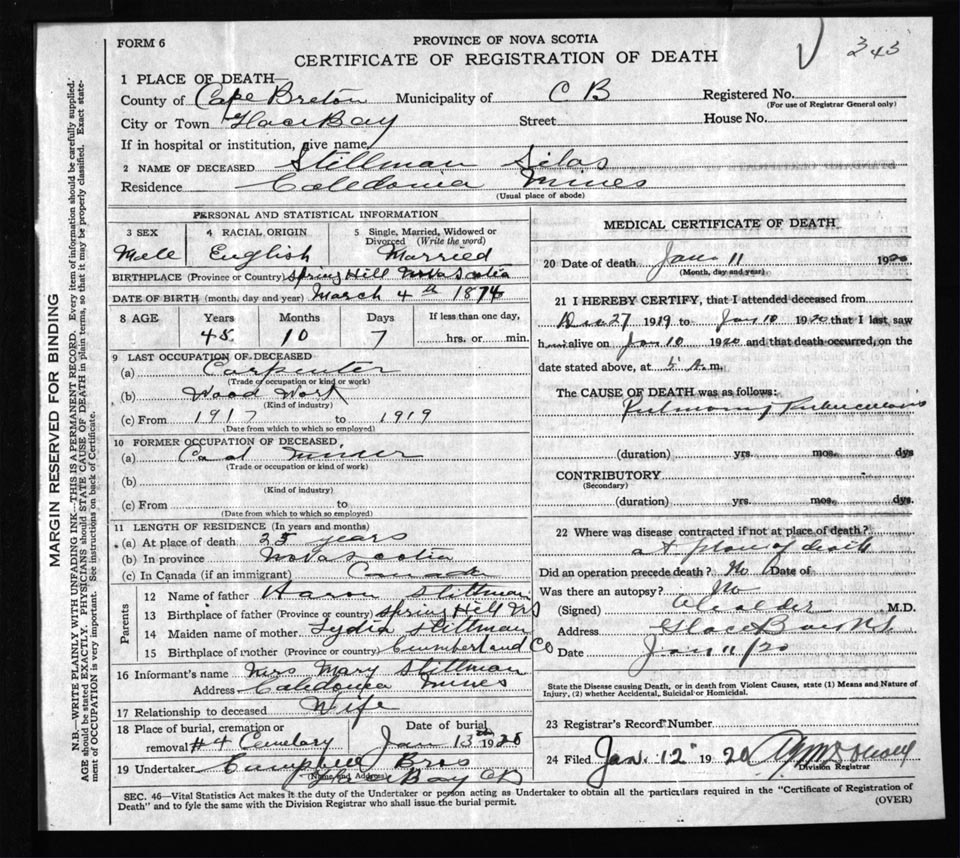 FORM 6
PROVINCE OF NOVA SCOTIA
CERTIFICATE OF REGISTRATION OF DEATH
343
1 PLACE OF DEATH—
County of Cape Breton Municipality of C B Registered No.
(For use of Registrar General only)
City or Town Glace Bay Street House No.
If in hospital or institution, give name
2 NAME OF DECEASED Stillman Silas
Residence Caledonia Mines
(Usual place of abode)
PERSONAL AND STATISTICAL INFORMATION
3 SEX 4 RACIAL ORIGIN 5 Single, Married, Widowed or Divorced (Write the word)
Male English Married
BIRTHPLACE (Province or Country) Spring Hill Nova Scotia
DATE OF BIRTH (month, day and year) March 4th 1874
8 AGE Years Months Days If less than one day,
45 10 7 hrs. or min.
9 LAST OCCUPATION OF DECEASED
(a) Carpenter
(Trade or occupation or kind or work)
(b) Wood Work
(Kind of industry)
(c) From 1917 to 1919
(Date from which to which so employed)
10 FORMER OCCUPATION OF DECEASED,
(a) Coal Miner
(Trade or occupation or kind of work)
(b)
(Kind of industry)
(c) From to
(Date from which to which so employed)
11 LENGTH OF RESIDENCE (In years and months)
(a) At place of death 25 years
(b) In province Nova Scotia
(c) In Canada (if an immigrant) Canada
Parents
12 Name of father Aaron Stillman
13 Birthplace of father (Province or country) Spring Hill NS
14 Maiden name of mother Lydia Stillman
15 Birthplace of mother (Province or country) Cumberland Co
16 Informant's name Mrs Mary Stillman
Address Caledonia Mines
17 Relationship to deceased Wife
18 Place of burial, cremation or removal #4 Cemetary Date of burial Jan 13th 1920
19 Undertaker Campbell Bros
(Name and Address) Glace Bay CB
MEDICAL CERTIFICATE OF DEATH
20 Date of death Jan 11 1920
(Month, day and year)
21 I HEREBY CERTIFY, that I attended deceased from
Dec 27 1919 to Jan 10 1920 that I last saw
him alive on Jan 10 1920 and that death occurred, on the
date stated above, at 5 A.m.
The CAUSE OF DEATH was as follows:
Pulmonary Tuberculosis
(duration) yrs. mos. dys
CONTRIBUTORY
(Secondary)
(duration) yrs. mos. dys.
22 Where was disease contracted if not at place of death?
at place of death
Did an operation precede death? No Date of
Was there an autopsy? No
(Signed) M.D.
Address Glace Bay NS
Date Jan 11/20
State the Disease causing Death, or in death from Violent Causes, state (1) Means and Nature of
Injury, (2) whether Accidental, Suicidal or Homicidal.
23 Registrar's Record Number
24 Filed Jan. 12 1920
Division Registrar
SEC. 46—Vital Statistics Act makes it the duty of the Undertaker or person acting as Undertaker to obtain all the particulars required in the "Certificate of Registration of
Death" and to fyle the same with the Division Registrar who shall issue the burial permit.
(OVER)
MARGIN RESERVED FOR BINDING
N.B.—WRITE PLAINLY WITH UNFADING INK—THIS IS A PERMANENT RECORD. Every item of information should be carefully supplied.
AGE should be stated EXACTLY. PHYSICIANS should STATE CAUSE OF DEATH in plain terms, so that it may be properly classified. Exact state-
ment of OCCUPATION is very important. See instructions on back of Certificate.